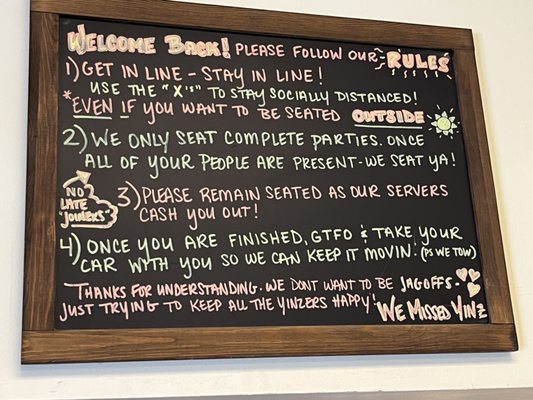 WELCOME BACK! PLEASE FOLLOW OUR RULES
1) GET IN LINE - STAY IN LINE!
USE THE "X's" TO STAY SOCIALLY DISTANCED!
*EVEN IF YOU WANT TO BE SEATED OUTSIDE
2) WE ONLY SEAT COMPLETE PARTIES. ONCE
ALL OF YOUR PEOPLE ARE PRESENT-WE SEAT YA!
NO
LATE
"JOINERS"
3) PLEASE REMAIN SEATED AS OUR SERVERS
CASH YOU OUT!
4) ONCE YOU ARE FINISHED, GTFO & TAKE YOUR
CAR WITH YOU SO WE CAN KEEP IT MOVIN'. (PS WE TOW)
THANKS FOR UNDERSTANDING. WE DONT WANT TO BE JAGOFFS-
JUST TRYING TO KEEP ALL THE YINZERS HAPPY! WE MISSED YINZ